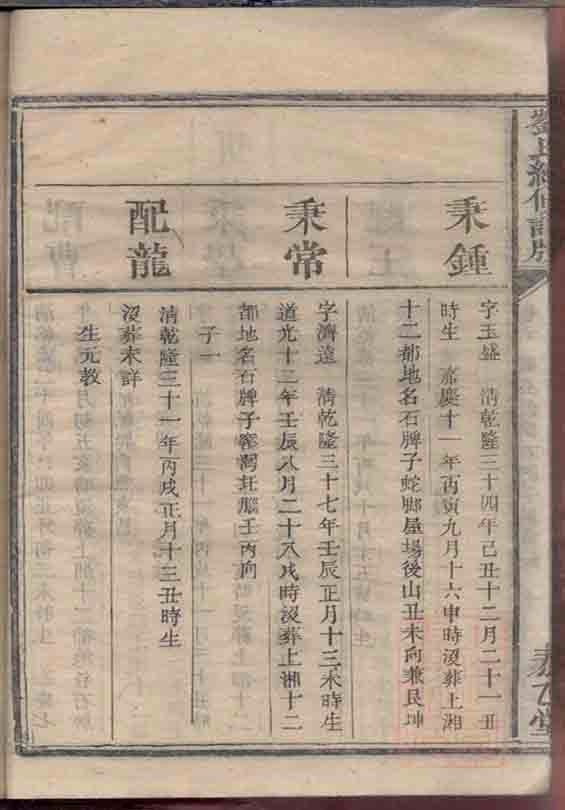 秉鍾
字玉盛　清乾隆三十四年己丑十二月二十一丑
時生　嘉慶十一年丙寅九月十六申時沒葬上湘
十二都地名石牌子蛇腳屋場後山丑未向兼艮坤
秉常
字濟遠　清乾隆三十七年壬辰正月十三未時生
道光十二年壬辰八月二十八戌時沒葬上湘十二
都地名石牌子窰灣圫腦壬丙向
子一
配龍
清乾隆三十一年丙戌正月十三丑時生
沒葬未詳
生元教